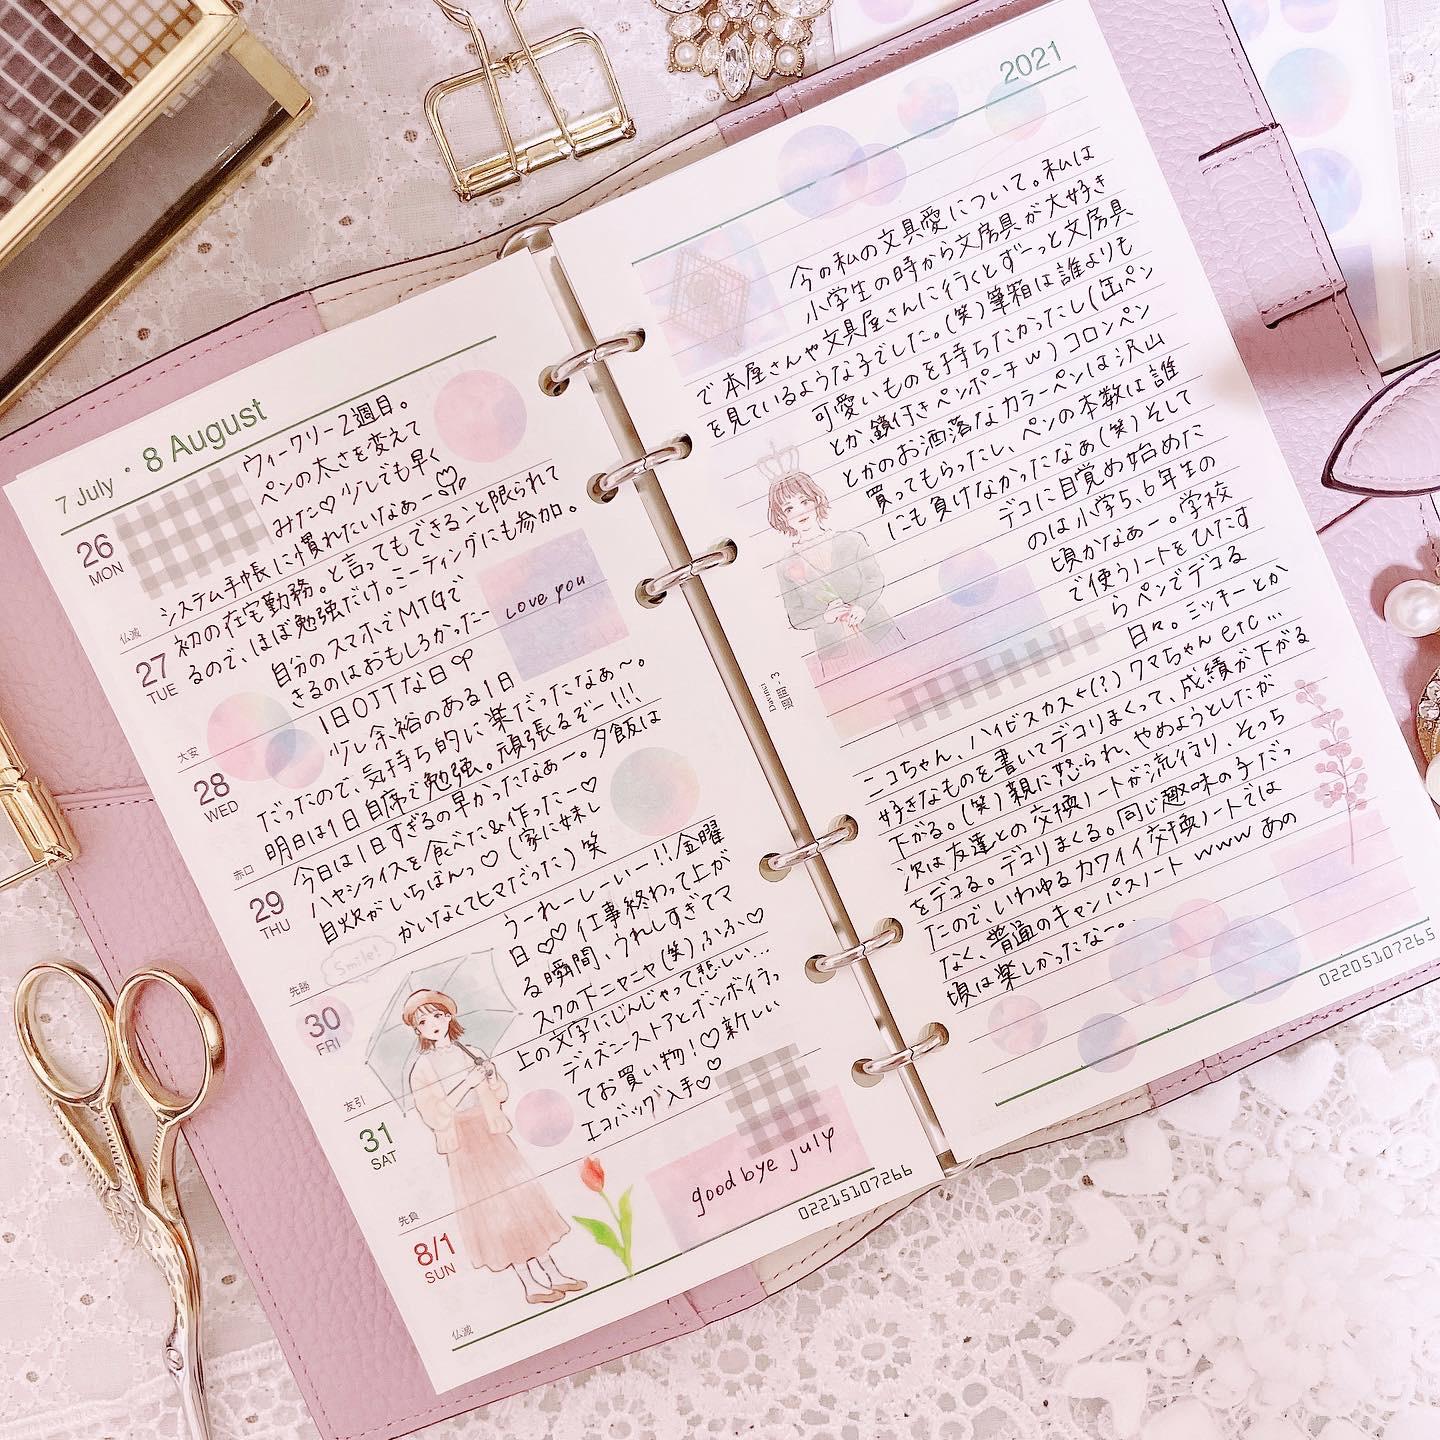 7 July ・ 8 August
26
MON
仏滅
27
TUE
大安
28
WED
赤口
29
THU
先勝
30
FRI
友引
31
SAT
先負
8/1
SUN
仏滅
ウィークリー2週目。
ペンの太さを変えて
みた♡少しでも早く
システム手帳に慣れたいなぁー
初の在宅勤務。と言ってもできること限られて
るので、ほぼ勉強だけ。ミーティングにも参加。
自分のスマホでMTGで
きるのはおもしろかったー
love you
1日OJTな日
少し余裕のある1日
だったので、気持ち的に楽だったなぁ〜。
明日は1日自席で勉強。頑張るぞー!!!
今日は1日すぎるの早かったなぁー。夕飯は
ハヤシライスを食べた&作ったー♡
自炊がいちばんっ♡(家に妹し
かいなくてヒマだった)笑
うーれーしーいー!!金曜
日♡♡仕事終わって上が
る瞬間、うれしすぎてマ
スクの下ニヤニヤ(笑)ふふ♡
上の文字にじんじゃって悲しい…
ディズニーストアとボンボン行っ
てお買い物!♡新しい
エコバッグ入手♡♡
Smile!
good bye july
02215107266
2021
今の私の文具愛について。私は
小学生の時から文房具が大好き
で本屋さんや文具屋さんに行くとずーっと文房具
を見ているような子でした。(笑)筆箱は誰よりも
可愛いものを持ちたかったし(缶ペン
とか、鏡付きペンポーチw)コロンペン
とかのお洒落なカラーペンは沢山
買ってもらったし、ペンの本数は誰
にも負けなかったなぁ(笑)そして
デコに目覚め始めた
のは小学5、6年生の
頃かなぁー。学校
で使うノートをひたす
らペンでデコる
日々。ミッキーとか
ニコちゃん、ハイビスカス←(?)クマちゃんetc…
好きなものを書いてデコりまくって、成績が下がる
下がる。(笑)親に怒られ、やめようとしたが
次は友達との交換ノートが流行り、そっち
をデコる。デコりまくる。同じ趣味の子だっ
たので、いわゆるカワイイ交換ノートでは
なく、普通のキャンパスノートwwwあの
頃は楽しかったなー。
Davinci
週間-3
02205107265